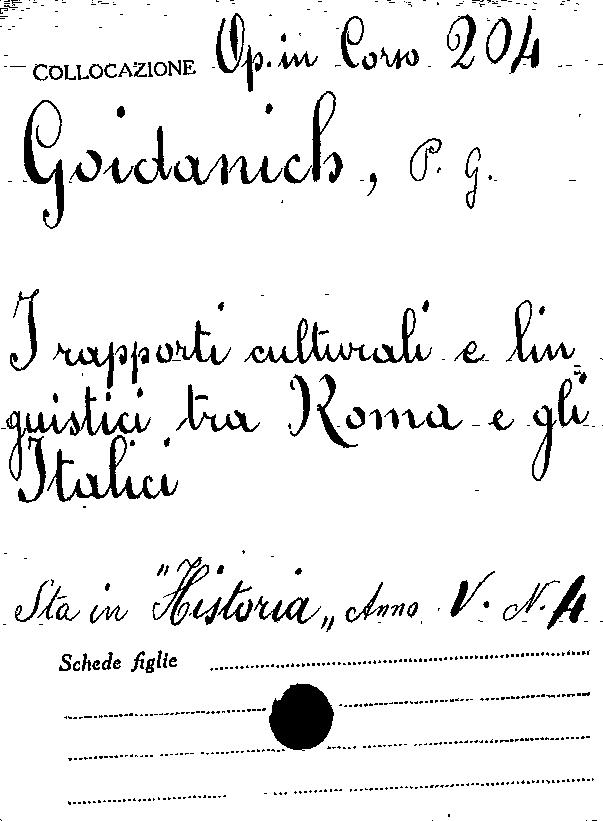 COLLOCAZIONE Op. in Corso 204
Goidanich, P. G.
I rapporti culturali e lin
guistici tra Roma e gli
Italici
Sta in "Historia„ Anno V. N. 4
Schede figlie